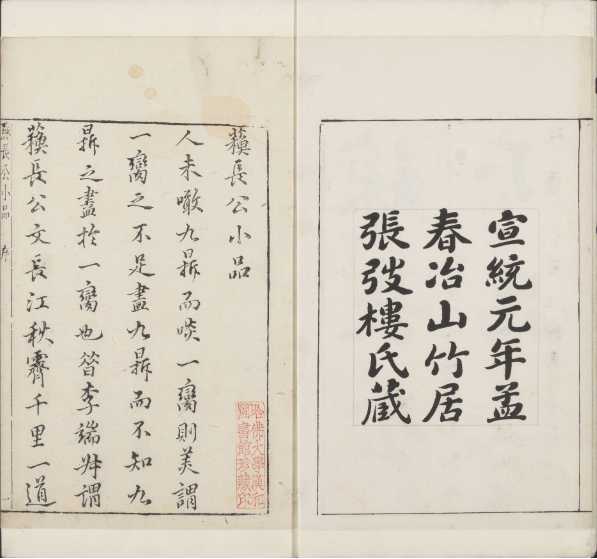 宣統元年孟
春冶山竹居
張弢樓氏藏
蘓長公小品
人未噉九鼎而啖一臠則美謂
一臠之不足盡九鼎而不知九
鼎之盡於一臠也昔李端叔謂
蘓長公文長江秋霽千里一道
哈佛大學漢和
圖書館珍藏印
長公小品 序 一